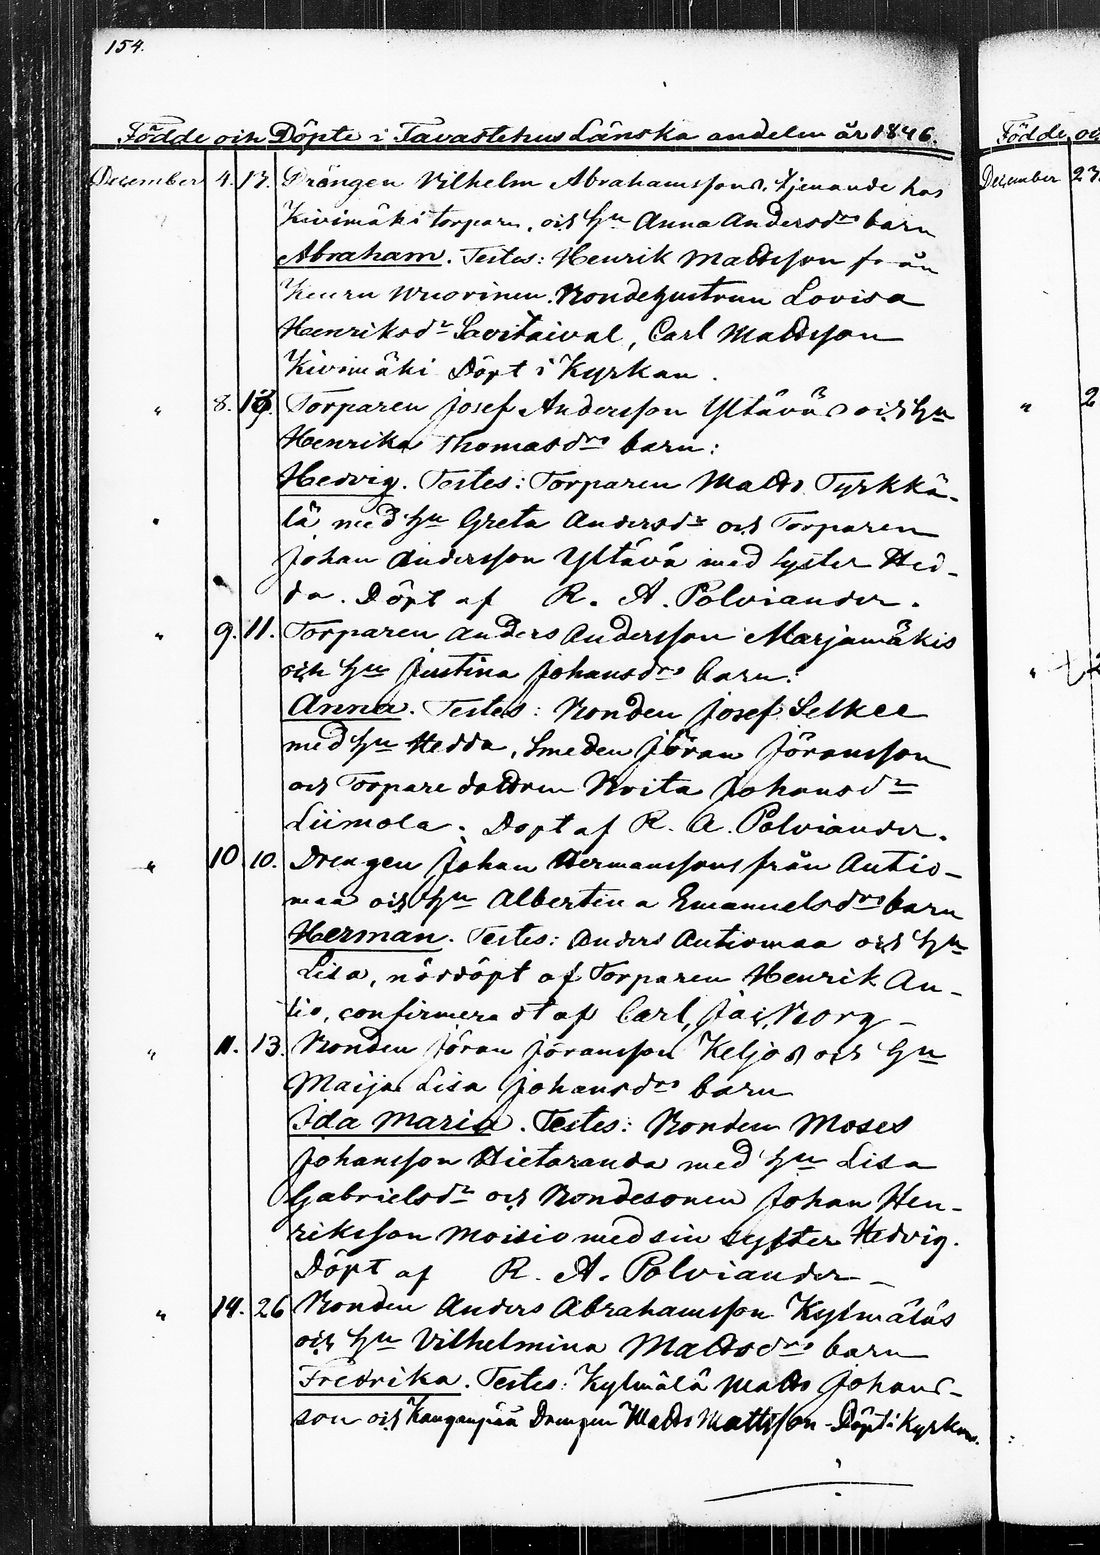 154.
Födde och Döpte i Tavastehus Länska andelen år 1846.
December 4. 17. Drängen Vilhelm Abrahamssons, tjenande hos
Kivimäki torpare, och Hu Anna Andersdrs barn
Abraham. Testes: Henrik Mattsson från
Wuorinen. Bondehustrun Lovisa
Henriksdr Savitaival, Carl Mattsson
Kivimäki Döpt i Kyrkan.
" 8. 13. Torparen Josef Andersson Yltäväs och Hu
Henrika Thomasdrs barn:
Hedvig. Testes: Torparen Matts Tyrkkä-
lä med Hu Greta Andersdr och Torparen
Johan Andersson Yltävä med syster Hed-
da. Döpt af R. A. Polviander.
" 9. 11. Torparen Anders Andersson Marjamäkis
och Hu Justina Johansdrs barn:
Anna. Testes: Bonden Josef Selkee
med Hu Hedda, Smeden Jöran Jöransson
och Torpare dottren Brita Johansdr
Liimola. Döpt af R. A. Polviander.
" 10 10. Drengen Johan Hermanssons från Antio-
maa och Hu Albertina Emanuelsdrs barn
Herman. Testes: Anders Antiomaa och Hu
Lisa, nöddöpt af Torparen Henrik An-
tio, confirmeradt af Carl Jac. Borg -
" 11. 13. Bonden Jöran Jöransson Keljos och Hu
Maija Lisa Johansdrs barn
Ida Maria. Testes: Bonden Moses
Johansson Hietaranda med Hu Lisa
Gabrielsdr och Bondesonen Johan Hen-
riksson Moisio med sin syster Hedvig.
Döpt af R. A. Polviander -
" 14. 26 Bonden Anders Abrahamsson Kylmäläs
och Hu Vilhelmina Mattsdrs barn
Fredrika. Testes: Kylmälä Matts Johans-
son och Kangaspää Drengen Matts Mattsson - Döpt i Kyrkan.
Födde oc
December 27.
" 2
"